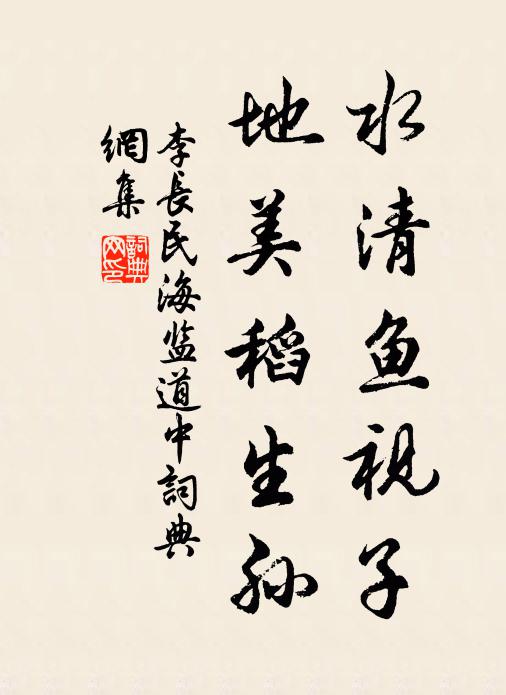 水清鱼视子
地美稻生孙
李長民海监道中詞典
網集
詞典
网印